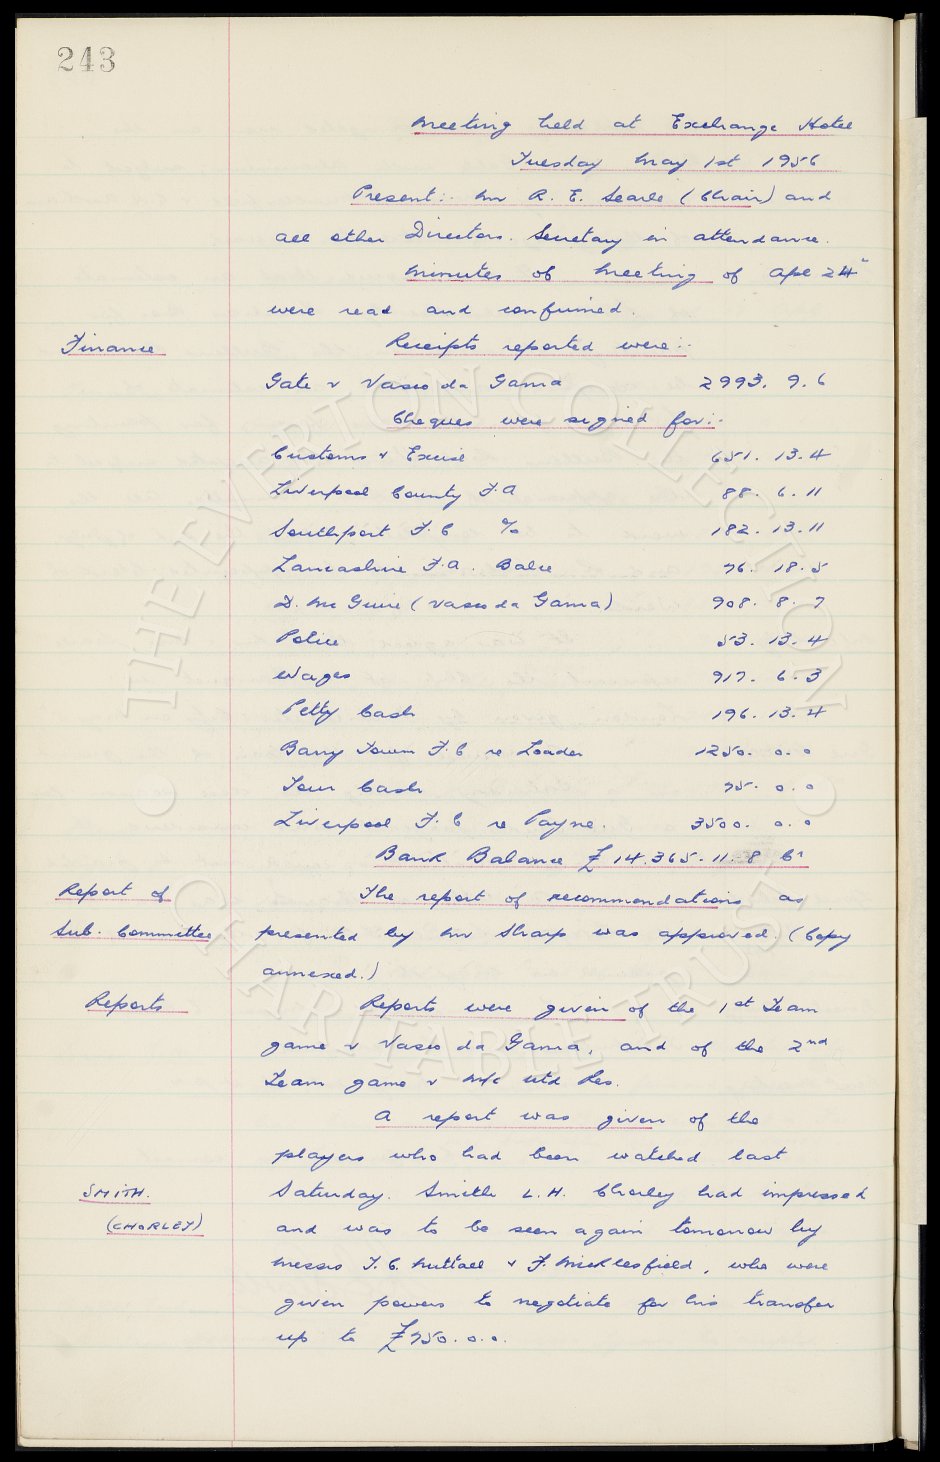 243
Meeting held at Exchange Hotel
Tuesday May 1st 1956
Present:- Mr R. E. Searle (Chair) and
all other Directors. Secretary in attendance.
Minutes of Meeting of Apl 24"
were read and confirmed.
Finance
Receipts reported were:-
Gate v Vasco da Gama 2993. 9. 6
Cheques were signed for:-
Customs & Excise 651. 13. 4
Liverpool County F.A 88. 6. 11
Southport F.C % 182. 13. 11
Lancashire F.A. Balce 76. 18. 5
D. McGuire (Vasco da Gama) 908. 8. 7
Police 53. 13. 4
Wages 917. 6. 3
Petty Cash 196. 13. 4
Barry Town F.C re Loader 1250. 0. 0
Tour Cash 75. 0. 0
Liverpool F.C re Payne. 3500. 0. 0
Bank Balance £14.365. 11. 8 Cr
Report of
Sub. Committee
The report of recommendations as
presented by Mr Sharp was approved. (Copy
annexed.)
Reports
Reports were given of the 1st Team
game v Vasco da Gama, and of the 2nd
Team game v M/c Utd Res.
A report was given of the
players who had been watched last
SMITH.
(CHORLEY)
Saturday. Smith L.H. Chorley had impressed
and was to be seen again tomorrow by
Messrs T. C. Nuttall & F. Micklesfield, who were
given powers to negotiate for his transfer
up to £750. 0. 0.
THE EVERTON COLLECTION
CHARITABLE TRUST